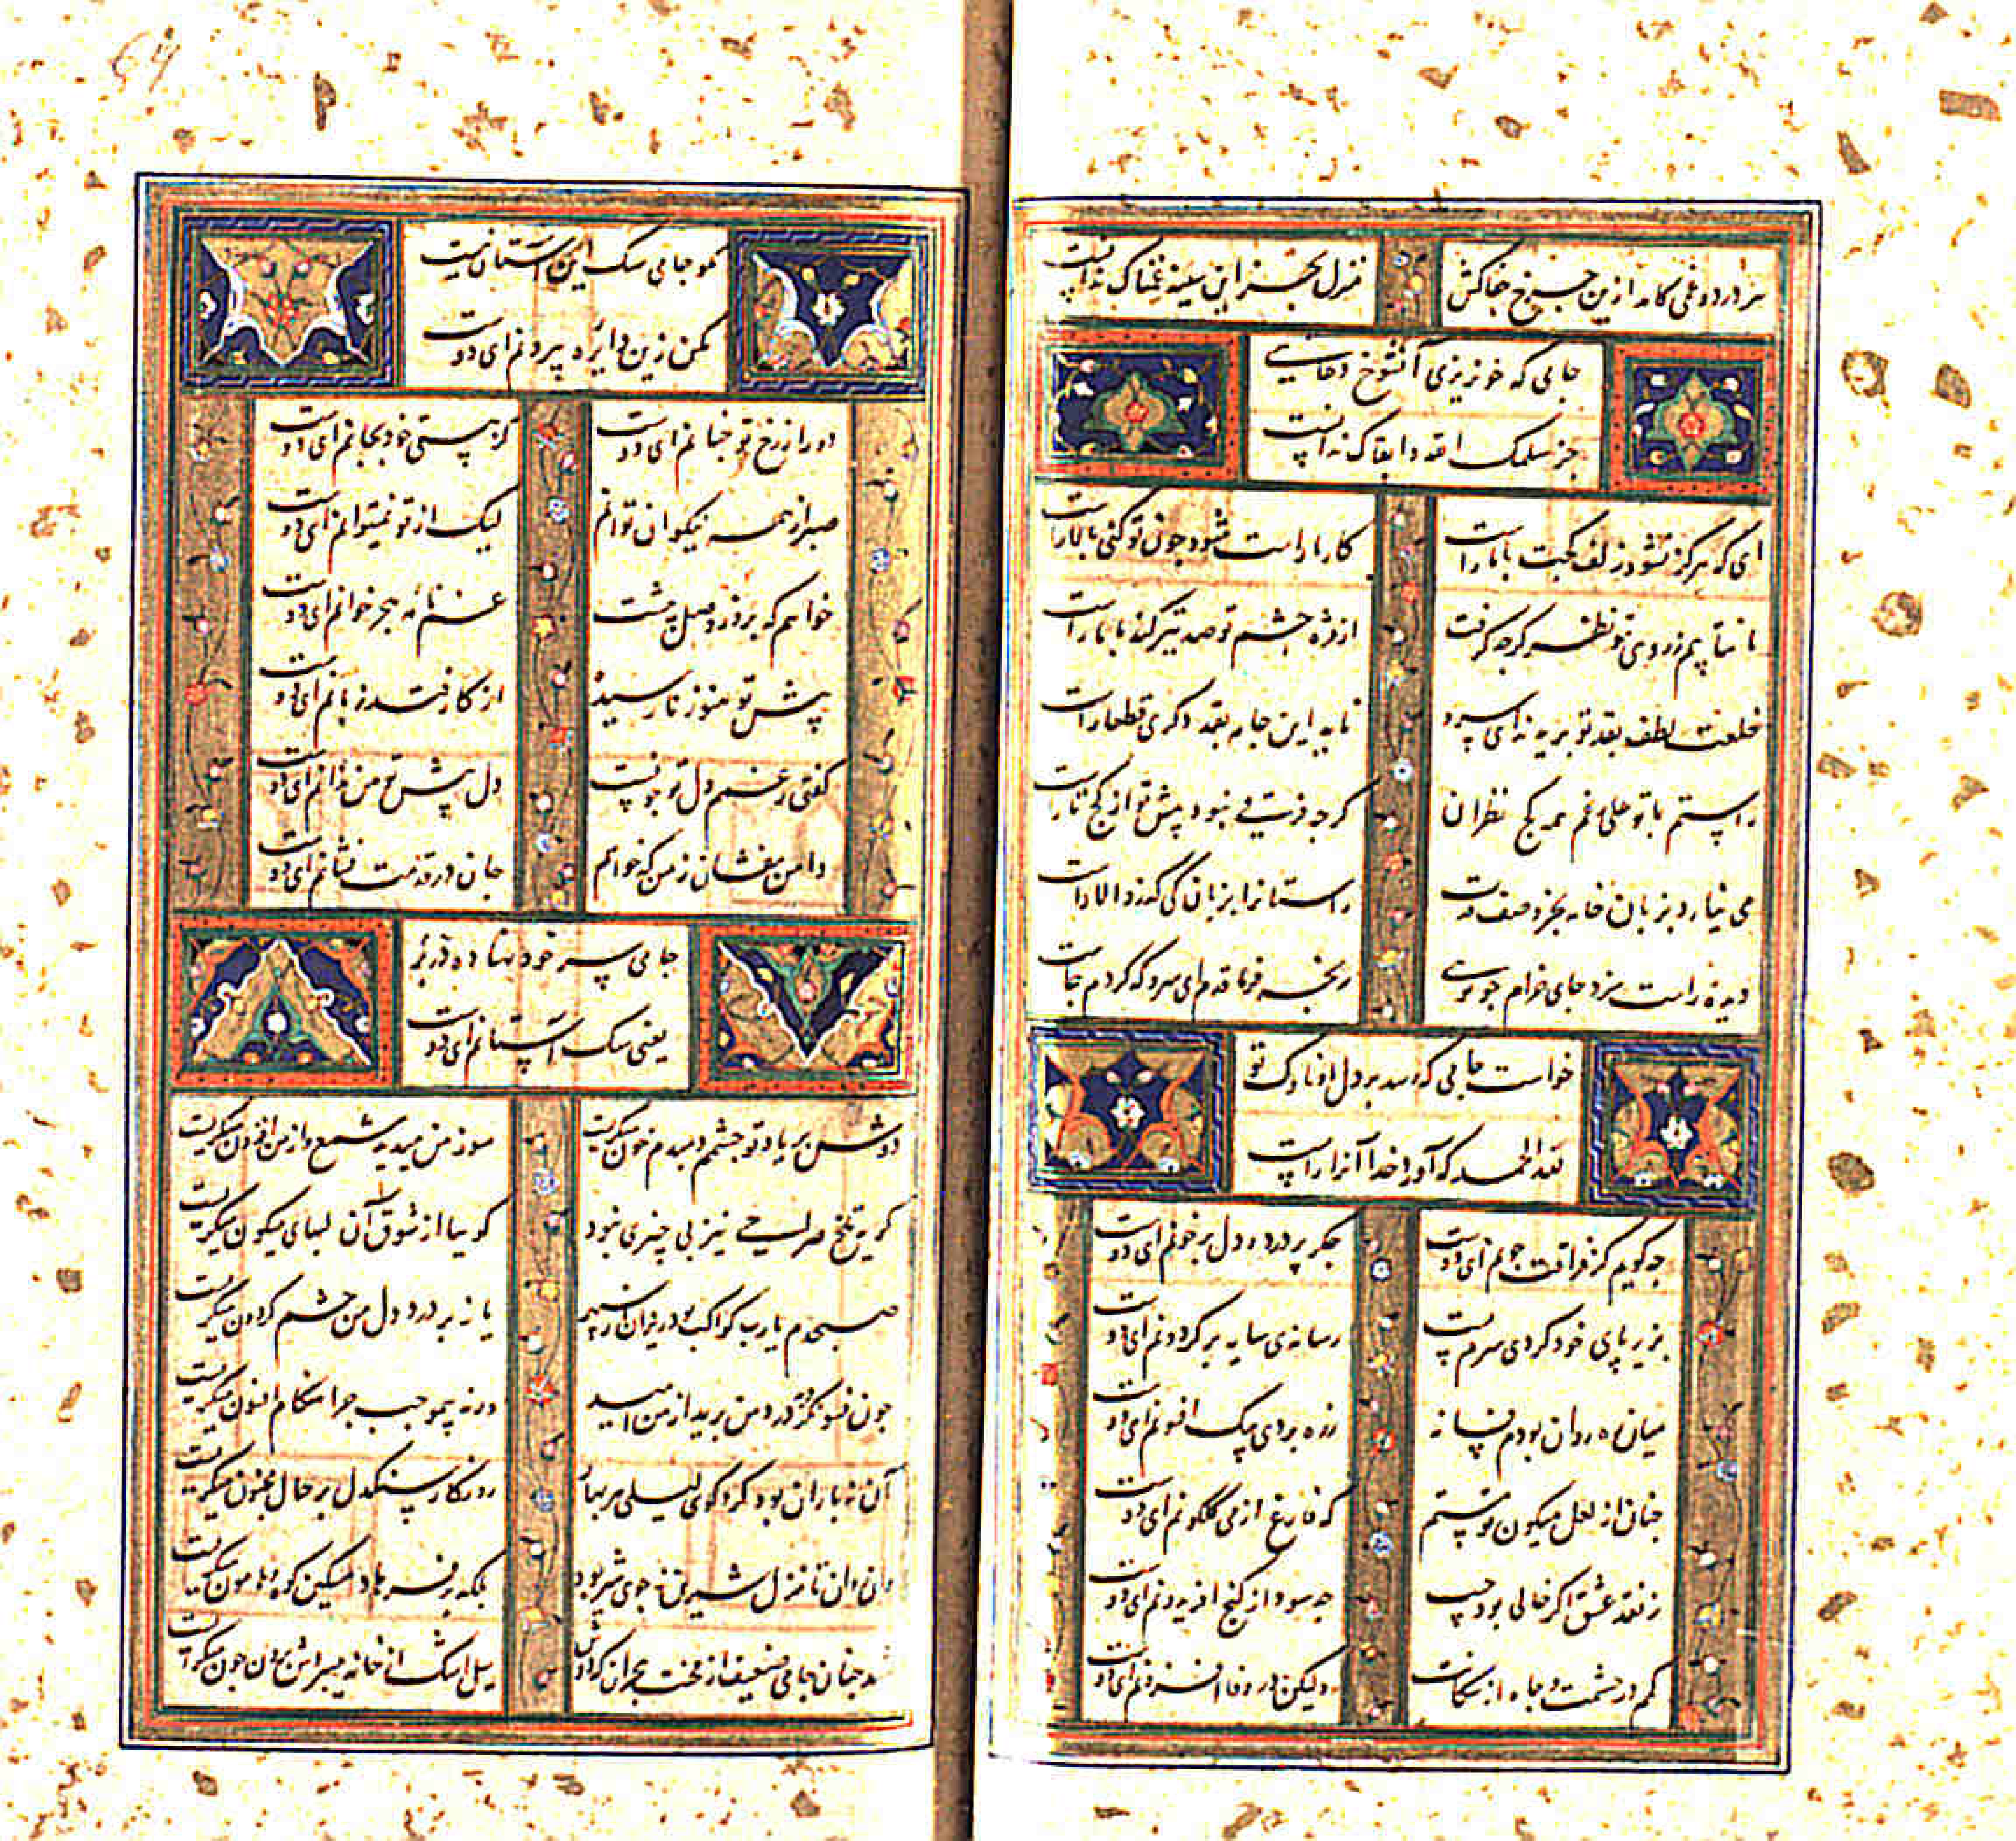 هر درد و غمی کامد ازین چرخ جفاکش منزل بجز این سینه غمناک ندانست
جامی که خونریزی آن شوخ
جز سلمک الله و ابقاک ندانست
ای که هرگز نشود زلف کجت با ما راست کار ما راست شود چون تو کنی بالا راست
ما نتابیم ز روی تو نظر گرچه گرفت از مژه چشم تو صد تیر کند با ما راست
خلعت لطف بقد تو بریدند ای سرو ناید این جامه بقد دگری قطعا راست
راستم با تو علی رغم همه کج نظران گرچه فرقی نبود پیش تو از کج تا راست
می نیارد بزبان خامه بجز وصف قدت راستانرا بزبان کی گذرد الا راست
دیده راست سزد جای خرام چو توئی رنجه فرما قدم ای سرو که کردم جا راست
خواست جامی که رسد بر دل او ناوک تو
لله الحمد که آورد خدا آنرا راست
چه گویم کز فراقت چونم ای دوست جگر پر درد و دل پر خونم ای دوست
بزیر پای خود کردی سرم پست رساندی سایه بر گردونم ای دوست
میان رهروان بودم فسانه ز ره بردی بیک افسونم ای دوست
چنان از لعل میگون تو مستم که فارغ از می گلگونم ای دوست
ز نقد عشق اگر خالی بود جیب چه سود از گنج افریدونم ای دوست
کم در حشمت و جاه از سگانت ولیکن در وفا افزونم ای دوست
مگو جامی سگ این آستان نیست
مکن زین دایره بیرونم ای دوست
دور از رخ تو چنانم ای دوست کز هستی خود بجانم ای دوست
صبر از همه نیکوان توانم لیک از تو نمیتوانم ای دوست
خواهم که بروز وصل پیشت غمنامه هجر خوانم ای دوست
پیش تو هنوز نارسیده از کار فتد زبانم ای دوست
گفتی ز غم دل تو چونست دل پیش تو من ندانم ای دوست
دامن مفشان ز من که خواهم جان در قدمت فشانم ای دوست
جامی سر خود نهاده بر در
یعنی سگ آستانم ای دوست
دوش بر یاد تو چشمم دمبدم خون میگریست سوز من میدید شمع و از من افزون میگریست
گریه تلخ صراحی نیز بی چیزی نبود گوییا از شوق آن لبهای میگون میگریست
صبحدم یا رب کواکب بود ریزان از سپهر یا ز بر درد دل من چشم گردون میگریست
چون فسونگر درد من برید از من امید ورنه بی موجب چرا هنگام افسون میگریست
آن نه باران بود گرد کوی لیلی هر بهار روزگار سنگدل بر حال مجنون میگریست
وان روان تا منزل شیرین نه جوی شیر بود بلکه بر فرهاد مسکین کوه و هامون میگریست
شد چنان جامی ضعیف از محنت هجران که دوش سیل اشک از خانه میبردش برون چون میگریست